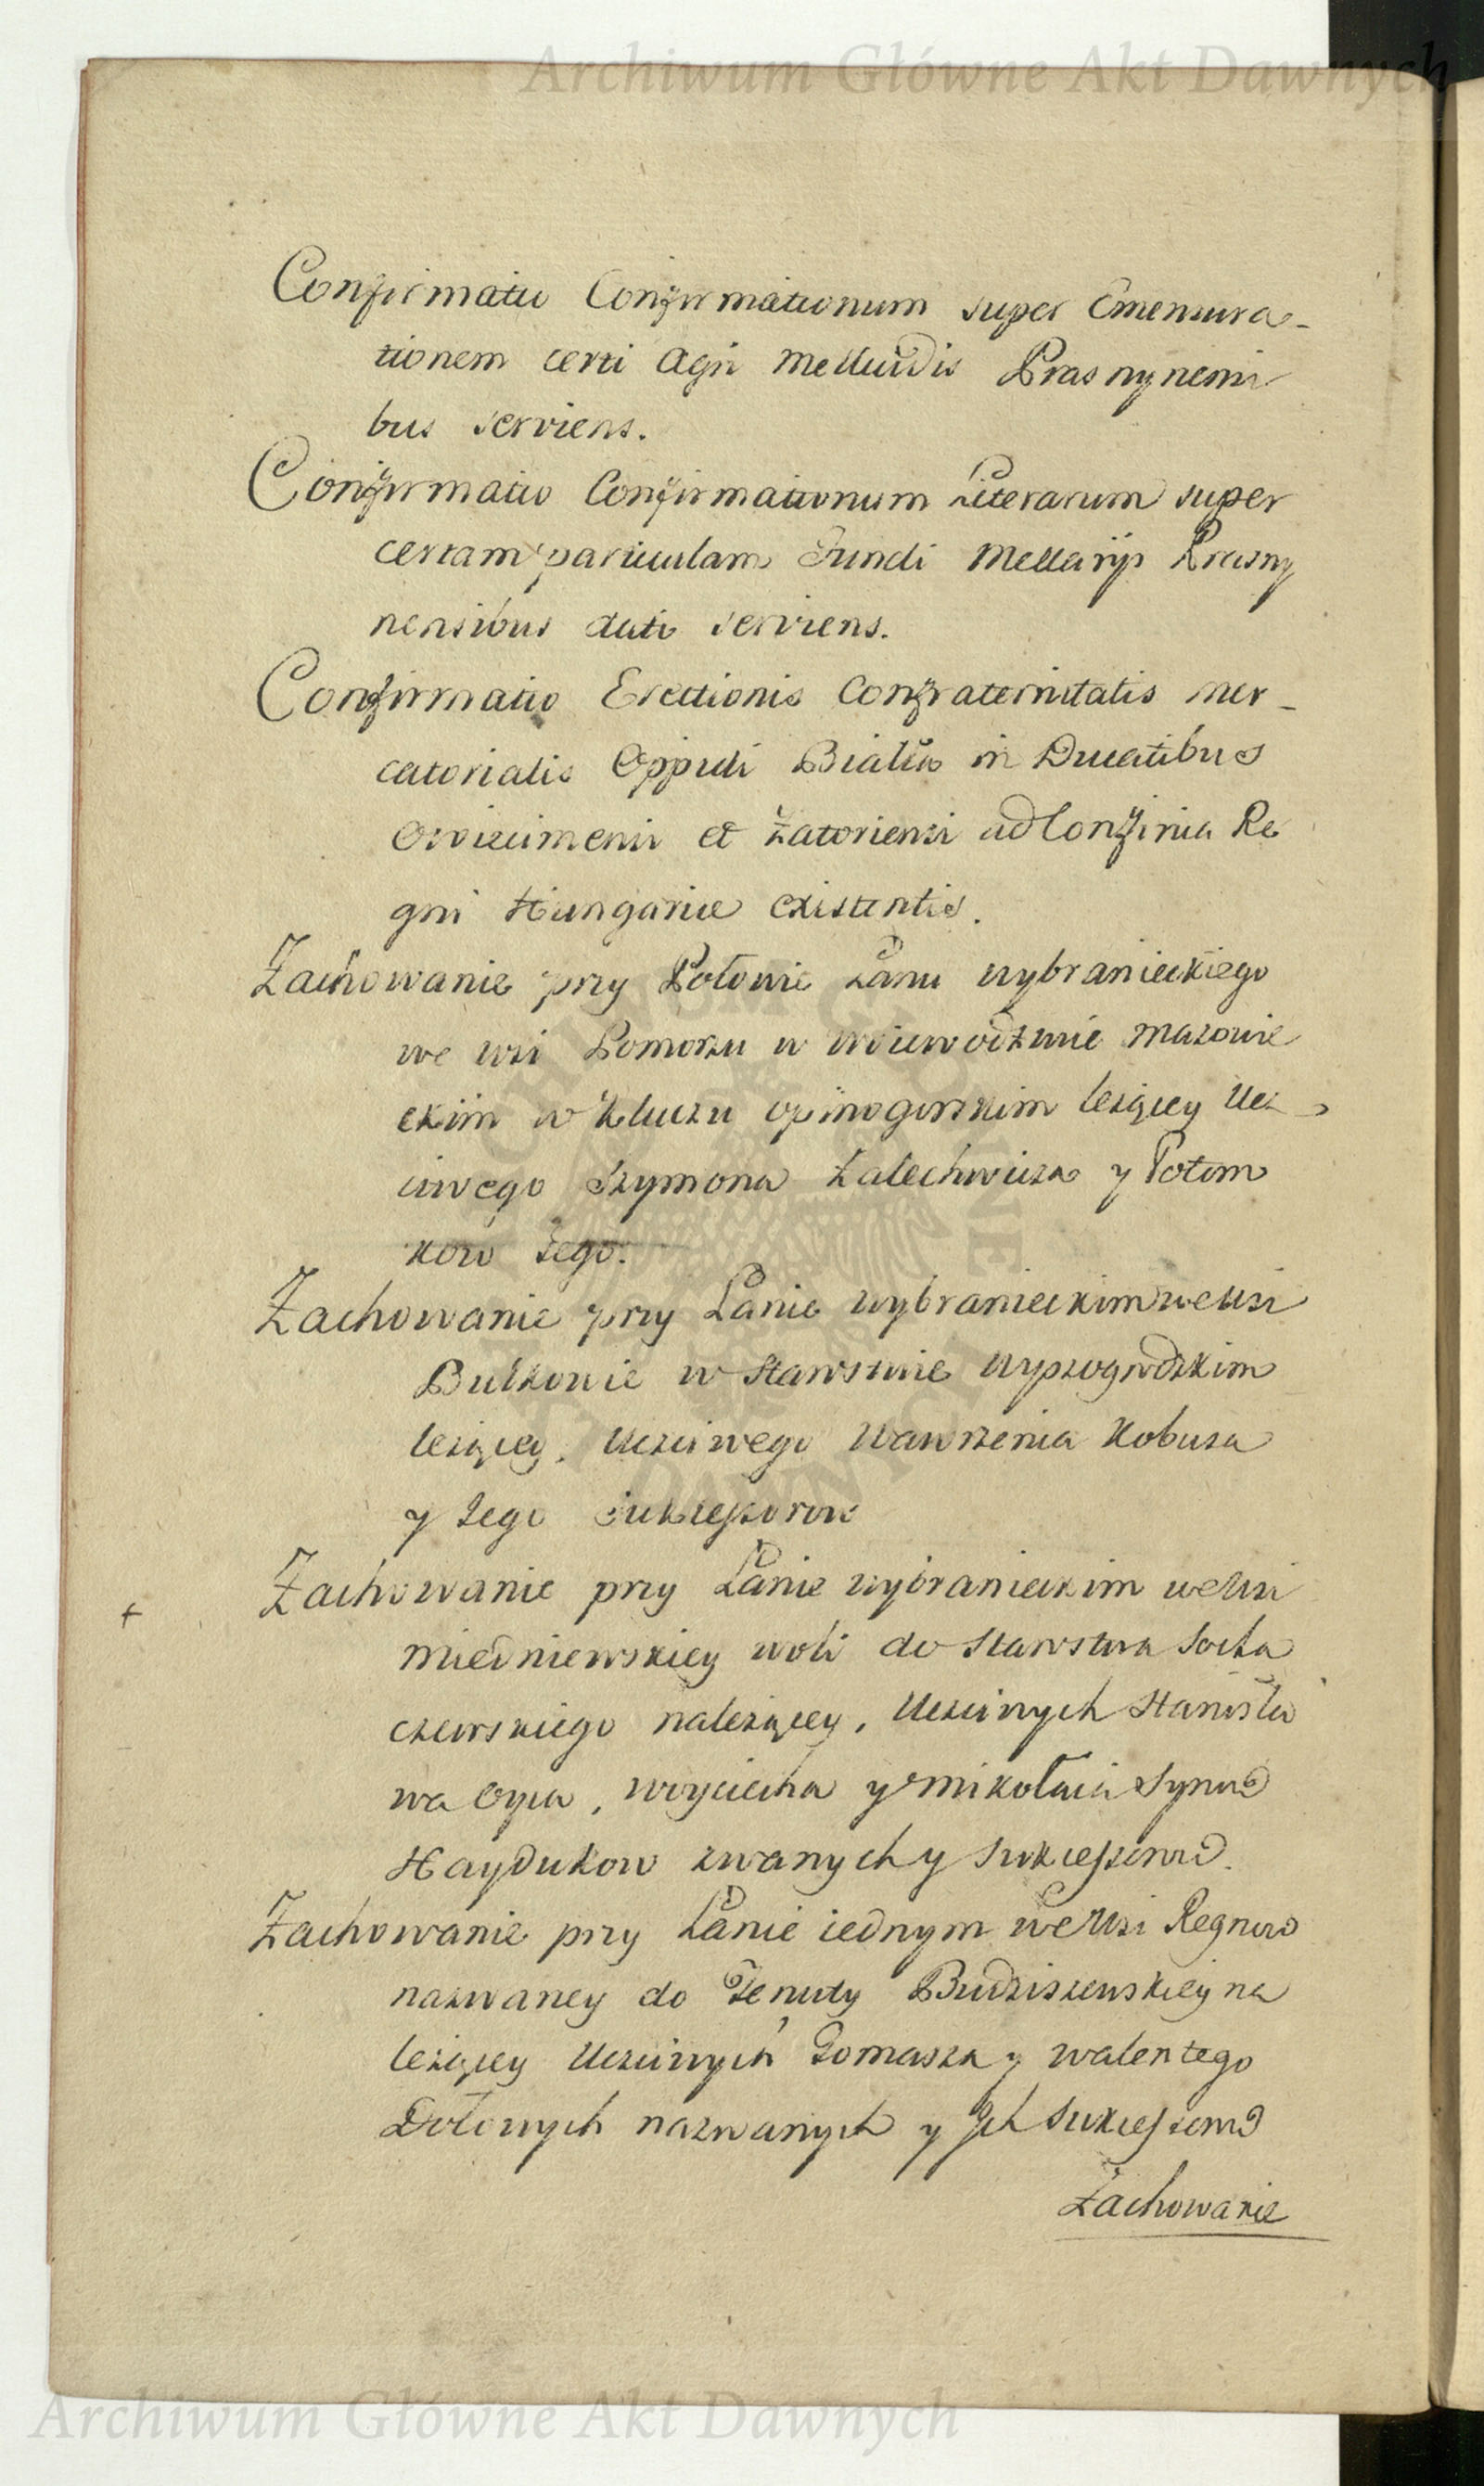 Archiwum Główne Akt Dawnych
Confirmatio Confirmationum super Emensura-
tionem certi Agri Mellicidis Prasnynensi
bus serviens.
Confirmatio Confirmationum Literarum super
certam particulam Fundi Mellarijs Prasny
nensibus dati serviens.
Confirmatio Erectionis Confraternitatis mer-
catorialis Oppidi Biała in Ducatibus
Osviecimensi et Zatoriensi ad Confinia Re
gni Hungariae existentis.
Zachowanie przy Połowie Łanu wybranieckiego
we wsi Pomorzu w Woiewodztwie Mazowie
ckiim w Kluczu opinogurskim leżącey Ucz-
ciwego Szymona Zalechwicza y Potom
kow Jego.
Zachowanie przy Łanie wybranieckim we Wsi
Bulkowie w Starostwie Wyszogrodzkim
leżącey, Uczciwego Wawrzenca Kobusa
y Jego Sukcessorow
+ Zachowanie przy Łanie wybranieckim we Wsi
Miedniewskiey Woli do Starostwa Socha
czewskiego należącey, Uczciwych Stanisła
wa Oyca, Woyciecha y Mikołaia Synow
Haydukow zwanych y Sukcessorow.
Zachowanie przy Łanie iednym we Wsi Regnow
nazwaney do Tenuty Budziszewskiey na
leżącey Uczciwych Tomasza y Walentego
Dołowych nazwanych y Jch Sukcessorow
Zachowanie
Archiwum Główne Akt Dawnych